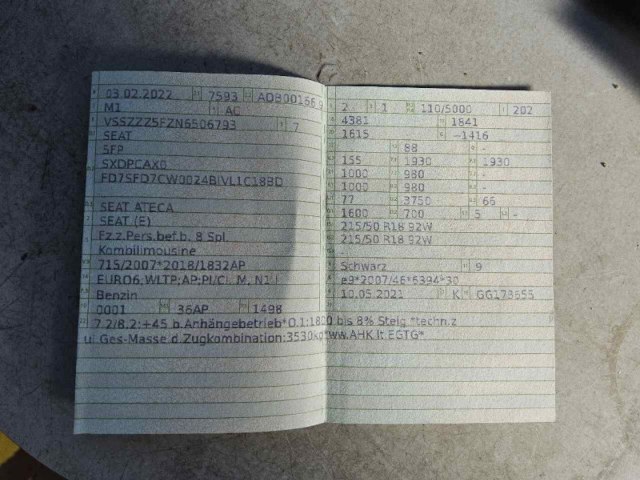 03.02.2022 7593 ADB00166
M1 AC
VSSZZZ5FZN6506793 7
SEAT
5FP
SXDPCAX0
FD7SFD7CW0024BIVL1C18BD
SEAT ATECA
SEAT (E)
Fz.z.Pers.bef.b. 8 Spl
Kombilimousine
715/2007*2018/1832AP
EURO6;WLTP;AP;PI/CI, M, N1 I
Benzin
0001 36AP 1498
2 1 110/5000 202
4381 1841
1615 -1416
88 -
155 1930 1930
1000 980 -
1000 980 -
77 3750 66
1600 700 5 -
215/50 R18 92W
215/50 R18 92W
Schwarz 9
e9*2007/46*6394*30
10.05.2021 K
7.2/8.2:+45 b.Anhängebetrieb*O.1:1800 bis 8% Steig.*techn.z
ul. Ges-Masse d.Zugkombination:3530kg*ww.AHK lt.EGTG*